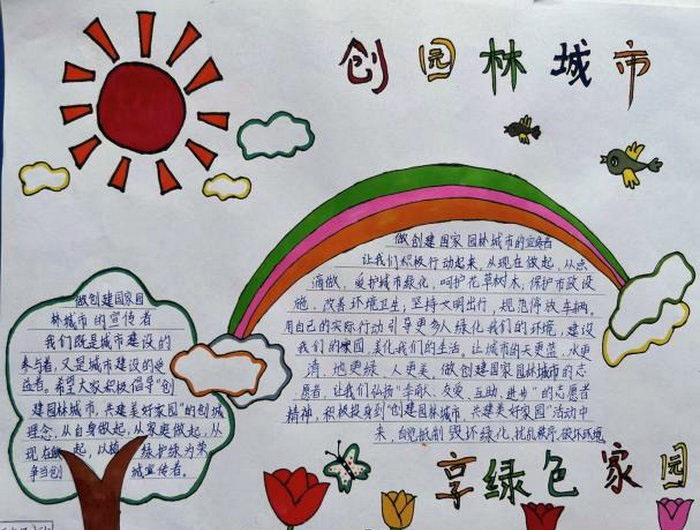 创园林城市
做创建国家园林城市的宣传者
让我们积极行动起来，从现在做起，从点
滴做，爱护城市绿化，呵护花草树木，保护市政设
施，改善环境卫生；坚持文明出行，规范停放车辆。
用自己的实际行动引导更多人绿化我们的环境，建设
我们的家园，美化我们的生活。让城市的天更蓝，水更
清，地更绿，人更美。做创建国家园林城市的志
愿者，让我们弘扬“奉献、友爱、互助、进步”的志愿者
精神，积极投身到“创建园林城市，共建美好家园”活动中
来，自觉抵制毁坏绿化，扰乱秩序，破坏环境
做创建国家园
林城市的宣传者
我们既是城市建设的
参与者，又是城市建设的受
益者。希望大家积极倡导“创
建园林城市，共建美好家园”的创城
理念，从自身做起，从家庭做起，从
现在做起，以植绿护绿为荣
争当创城宣传者。
享绿色家园